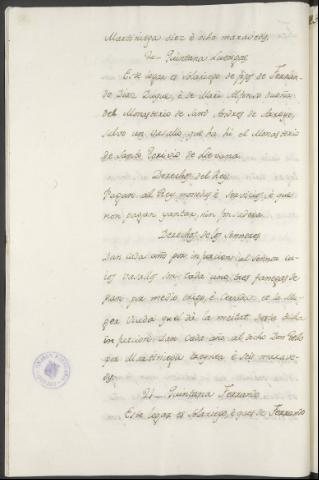 Martiniega diez è ocho maravedis.
De Quintana Luengos
Este logar es Solariego de fijos de Ferran-
do Diaz Duque, è de Mari Alfonso dueña
del Monasterio de Sant Andres de Arroyo,
salvo un vasallo, que ha hi el Monasterio
de Santo Toribio de Lievana.
Derechos del Rey
Pagan al Rey moneda è Servicios, è que
non pagan yantar, nin fonsadera
Derechos de los Sennores
Dan cada año por infurcion al Señor cu-
ios vasallos son, cada uno tres fanegas de
pan por medio trigo, è Cevada, et la Mu-
ger viuda que dà la meitat desta dicha
infurcion. Dan cada año al dicho Don Tello
por Martiniega treynta è seis marave-
dis.
De Quintana Ferrando
Este logar es Solariego, è que es de Ferrando